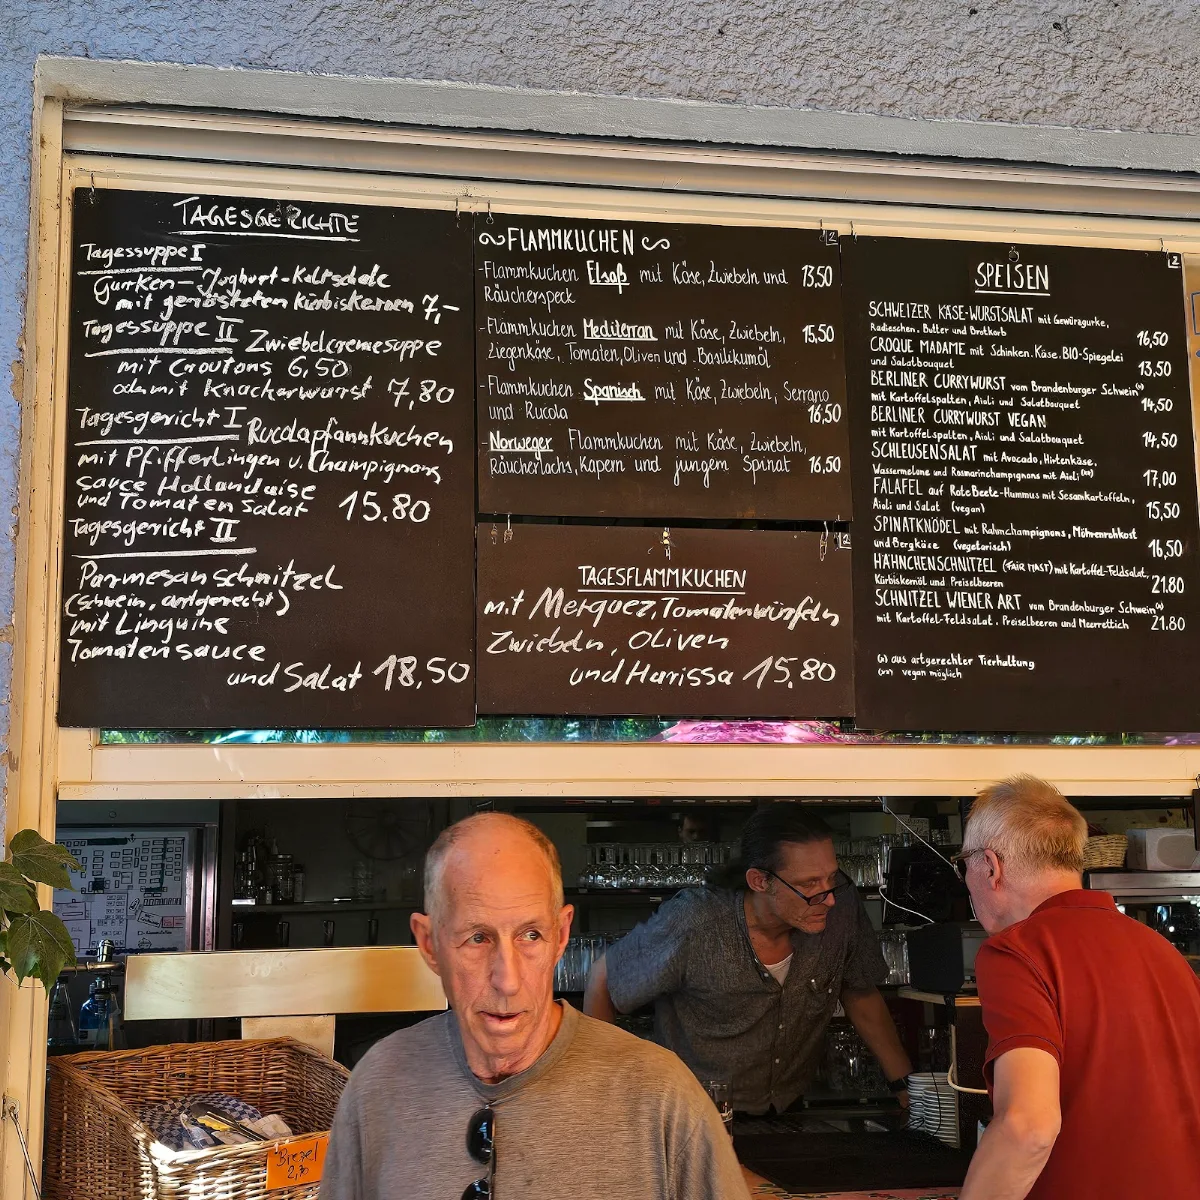 TAGESGERICHTE
Tagessuppe I
Gurken-Joghurt-Kaltschale
mit gerösteten Kürbiskernen 7,-
Tagessuppe II Zwiebelcremesuppe
mit Croutons 6,50
od. mit Knackerwurst 7,80
Tagesgericht I Rucolapfannkuchen
mit Pfifferlingen u. Champignons
sauce Hollandaise
und Tomatensalat 15.80
Tagesgericht II
Parmesanschnitzel
(Schwein, artgerecht)
mit Linguine
Tomatensauce
und Salat 18,50
FLAMMKUCHEN
2
-Flammkuchen Elsaß mit Käse, Zwiebeln und 13,50
Räucherspeck
-Flammkuchen Mediterran mit Käse, Zwiebeln, 15,50
Ziegenkäse, Tomaten, Oliven und Basilikumöl
-Flammkuchen Spanisch mit Käse, Zwiebeln, Serrano
und Rucola 16,50
-Norweger Flammkuchen mit Käse, Zwiebeln,
Räucherlachs, Kapern und jungem Spinat 16,50
2
TAGESFLAMMKUCHEN
mit Merguez, Tomatenwürfeln
Zwiebeln, Oliven
und Harissa 15,80
2
SPEISEN
SCHWEIZER KÄSE-WURSTSALAT mit Gewürzgurke,
Radieschen, Butter und Brotkorb 16,50
CROQUE MADAME mit Schinken, Käse, BIO-Spiegelei
und Salatbouquet 13,50
BERLINER CURRYWURST vom Brandenburger Schwein(*)
mit Kartoffelspalten, Aioli und Salatbouquet 14,50
BERLINER CURRYWURST VEGAN
mit Kartoffelspalten, Aioli und Salatbouquet 14,50
SCHLEUSENSALAT mit Avocado, Hirtenkäse,
Wassermelone und Rosmarinchampignons mit Aioli (**) 17,00
FALAFEL auf Rote Beete-Hummus mit Sesamkartoffeln,
Aioli und Salat (vegan) 15,50
SPINATKNÖDEL mit Rahmchampignons, Möhrenrohkost
und Bergkäse (vegetarisch) 16,50
HÄHNCHENSCHNITZEL (FAIR MAST) mit Kartoffel-Feldsalat,
Kürbiskernöl und Preiselbeeren 21.80
SCHNITZEL WIENER ART vom Brandenburger Schwein(*)
mit Kartoffel-Feldsalat, Preiselbeeren und Meerrettich 21.80
(*) aus artgerechter Tierhaltung
(**) vegan möglich
Brezel
2,30